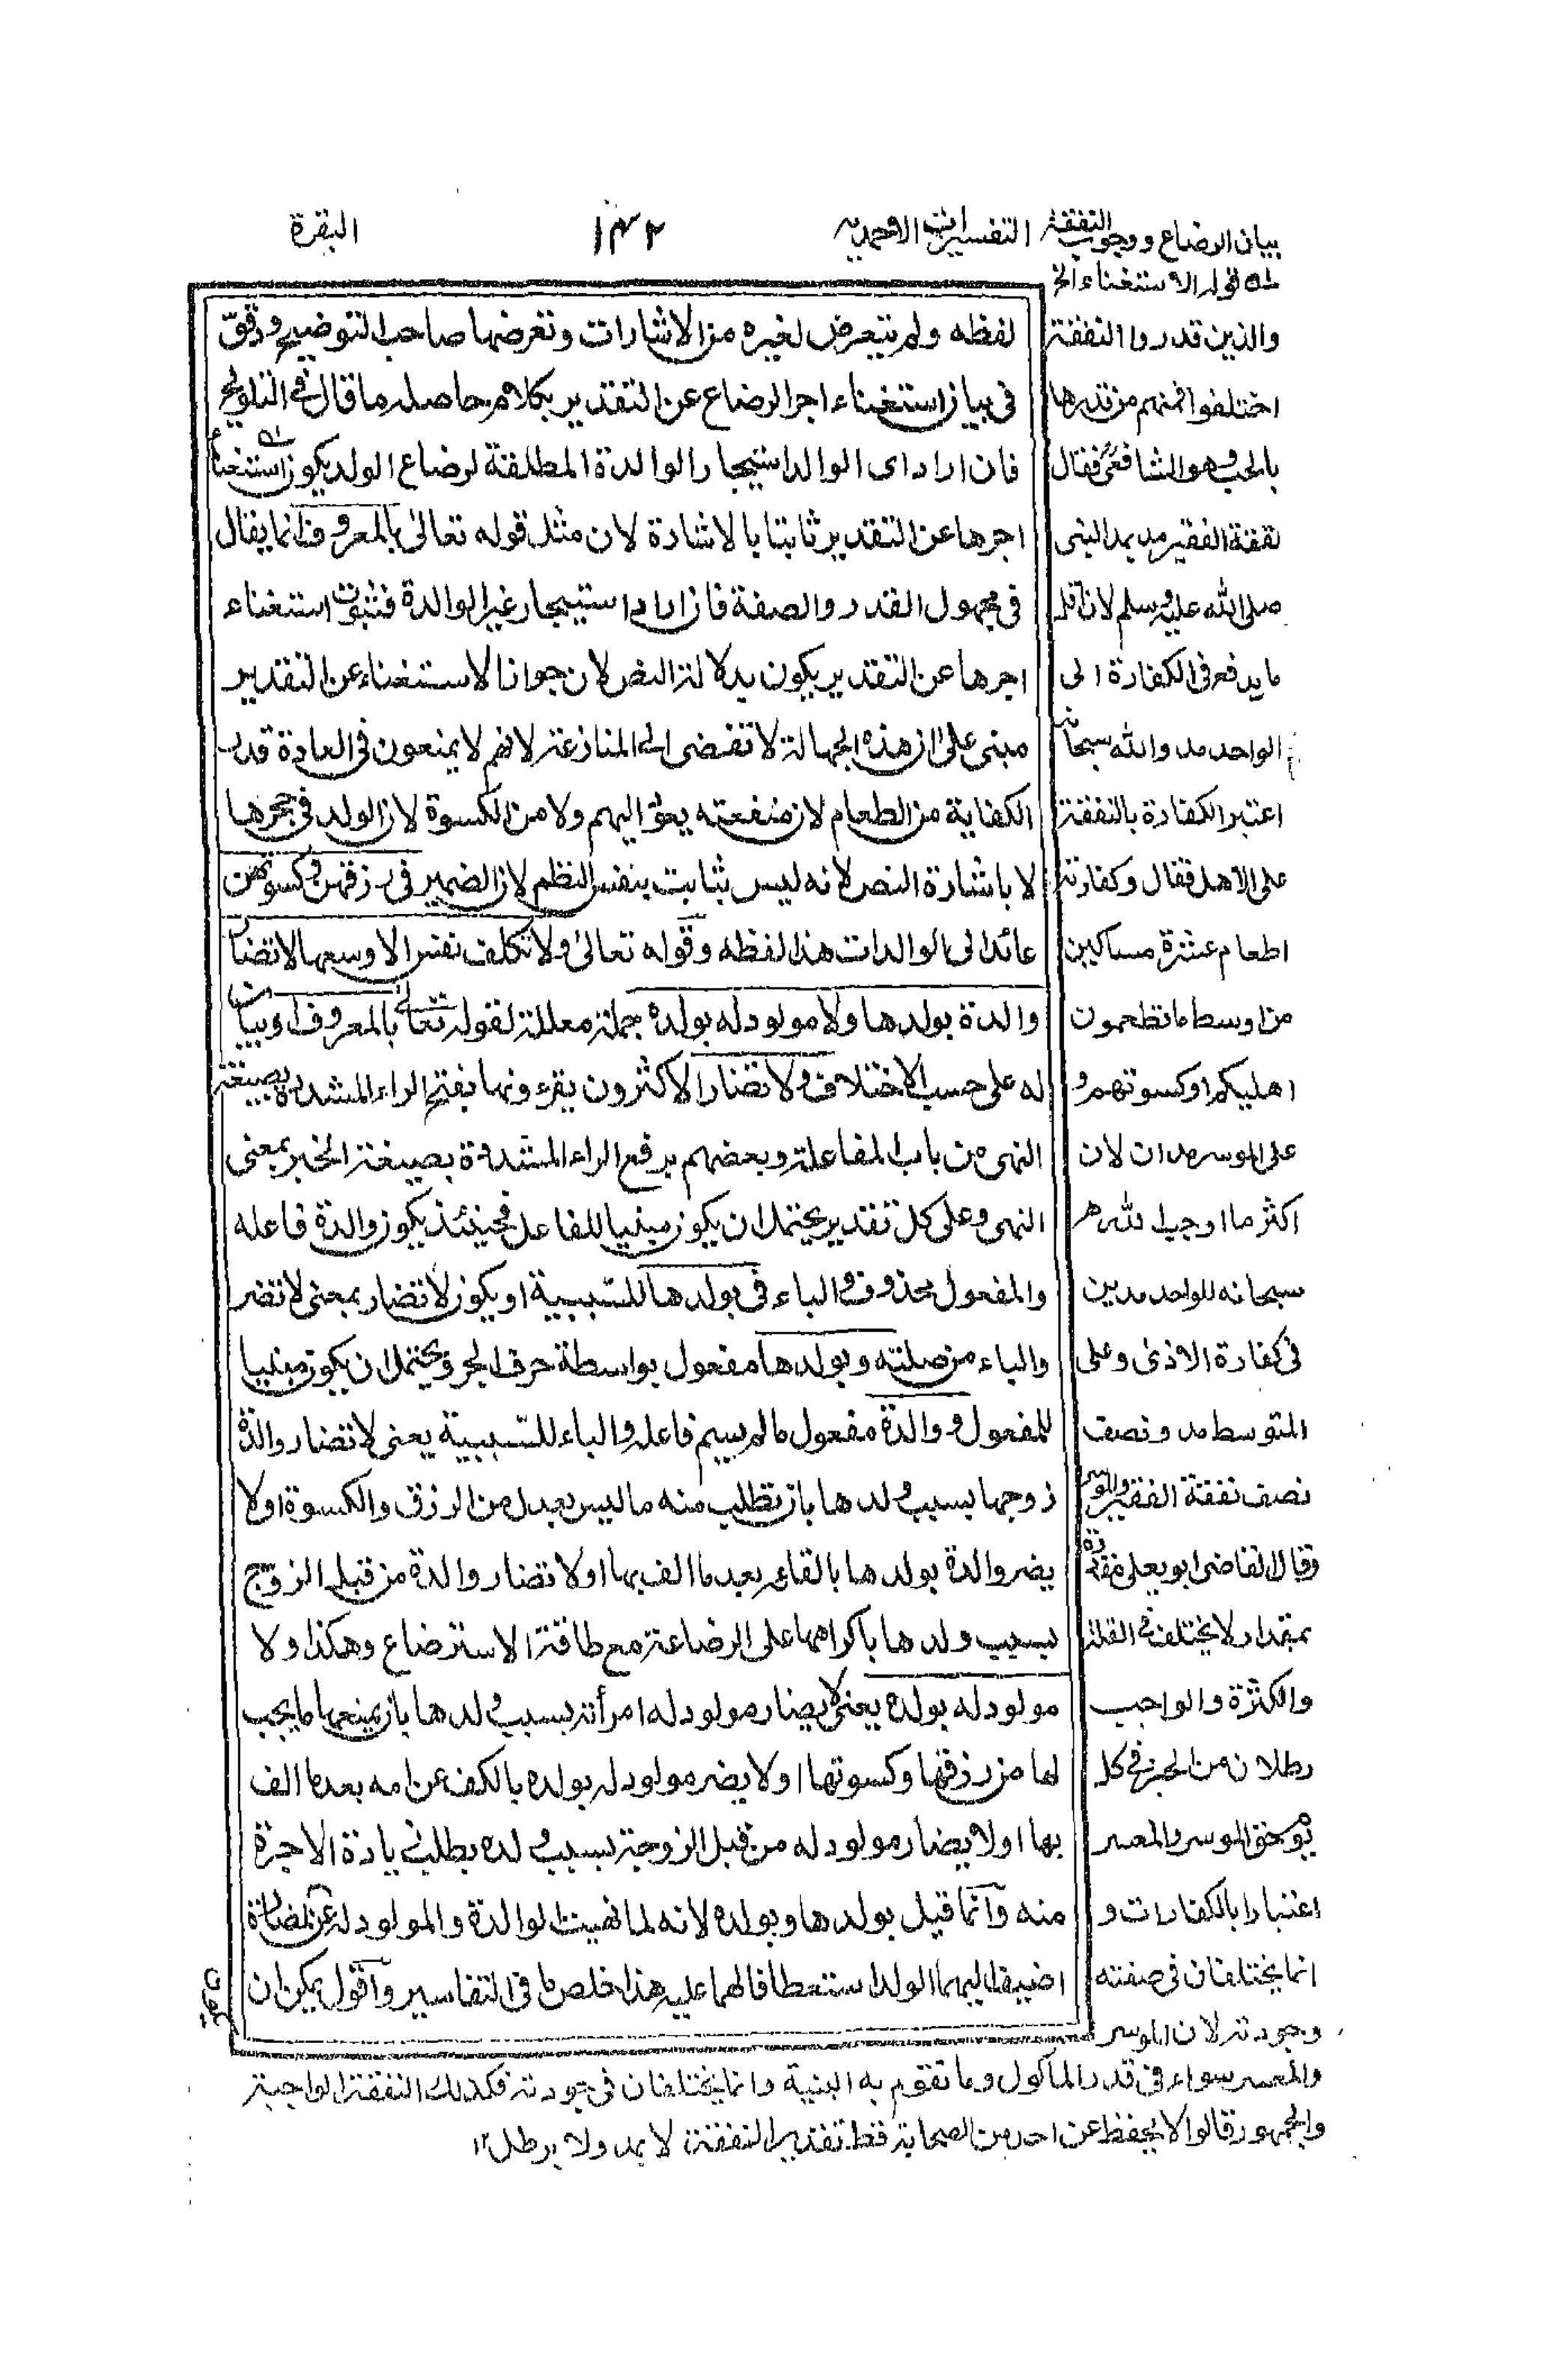 بيان الرضاع ووجوب النفقة
التفسيرات الاحمديه
١٤٢
البقرة
لفظه ولم يتعرض لغيره من الاشارات وتعرضها صاحب التوضيح ودقق
فى بيان استغناء اجر الرضاع عن التقدير بكلام حاصله ما قال فى التلويح
فان اراد اى الوالد استيجار الوالدة المطلقة لرضاع الولد يكون استغناء
اجرها عن التقدير ثابتا بالاشارة لان مثل قوله تعالى بالمعروف انما يقال
فى مجهول القدر والصفة فان اراد استيجار غير الوالدة فثبوت استغناء
اجرها عن التقدير يكون بدلالة النص لان جواز الاستغناء عن التقدير
مبنى على ان هذه الجهالة لا تفضى الى المنازعة لانهم لا يمنعون فى العادة قدر
الكفاية من الطعام لان منفعته يعود اليهم ولا من الكسوة لان الولد فى حجرها
لا باشارة النص لانه ليس بثابت بنفس النظم لان الضمير فى رزقهن وكسوتهن
عائد الى الوالدات هذا لفظه وقوله تعالى ولا تكلف نفس الا وسعها لا تضار
والدة بولدها ولا مولود له بولده جملة معللة لقوله تعالى بالمعروف او بيان
له على حسب الاختلاف ولا تضار الاكثرون يقرءونها بفتح الراء المشددة بصيغة
النهى من باب المفاعلة وبعضهم برفع الراء المشددة بصيغة الخبر بمعنى
النهى وعلى كل تقدير يحتمل ان يكون مبنيا للفاعل فحينئذ يكون والدة فاعله
والمفعول محذوف والباء فى بولدها للسببية او يكون لا تضار بمعنى لا تضر
والباء من صلته وبولدها مفعول بواسطة حرف الجر ويحتمل ان يكون مبنيا
للمفعول و والدة مفعول ما لم يسم فاعله والباء للسببية يعنى لا تضار والدة
زوجها بسبب ولدها بان تطلب منه ما ليس بعدل من الرزق والكسوة او لا
يضر والدة بولدها بالقاءه بعد ما الف بها او لا تضار والدة من قبل الزوج
بسبب ولدها باكراهها على الرضاعة مع طاقة الاسترضاع وهكذا ولا
مولود له بولده يعنى لا يضار مولود له امرأته بسبب ولدها بان يمنعها ما يجب
لها من رزقها وكسوتها او لا يضر مولود له بولده بالكف عن امه بعد ما الف
بها او لا يضار مولود له من قبل الزوجة بسبب ولده بطلب زيادة الاجرة
منه وانما قيل بولدها وبولده لانه لما نهيت الوالدة والمولود له عن المضارة
اضيف اليهما الولد استعطافا لهما عليه هذا خلص ما فى التفاسير واقول يمكن ان
يكون
له قوله الاستغناء الخ
والذين قدروا النفقة
اختلفوا فمنهم من قدرها
بالحب وهو الشافعى فقال
نفقة الفقير مد بمد النبى
صلى الله عليه وسلم لان اقل
ما يدفع فى الكفارة الى
الواحد مد والله سبحانه
اعتبر الكفارة بالنفقة
على الاهل فقال وكفارته
اطعام عشرة مساكين
من اوسط ما تطعمون
اهليكم او كسوتهم و
على الموسر مدان لان
اكثر ما اوجب الله
سبحانه للواحد مدين
فى كفارة الاذى وعلى
المتوسط مد ونصف
نصف نفقة الفقير والموسر
وقال القاضى ابو يعلى مقدرة
بمقدار لا يختلف فى القلة
والكثرة والواجب
رطلان من الخبز فى كل
يوم حق الموسر والمعسر
اعتبارا بالكفارات و
انما يختلفان فى صفته
وجودته لان الموسر
والمعسر سواء فى قدر الماكول وما تقوم به البنية وانما يختلفان فى جودته فكذلك النفقة الواجبة
والجمهور قالوا لا يحفظ عن احد من الصحابة قط تقدير النفقة لا بمد ولا برطل ١٢